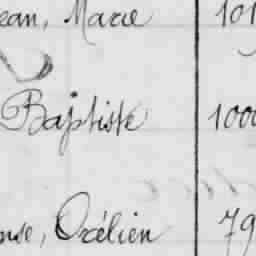 ean, Marie 101
Baptiste 1000
nse, Orélien 79